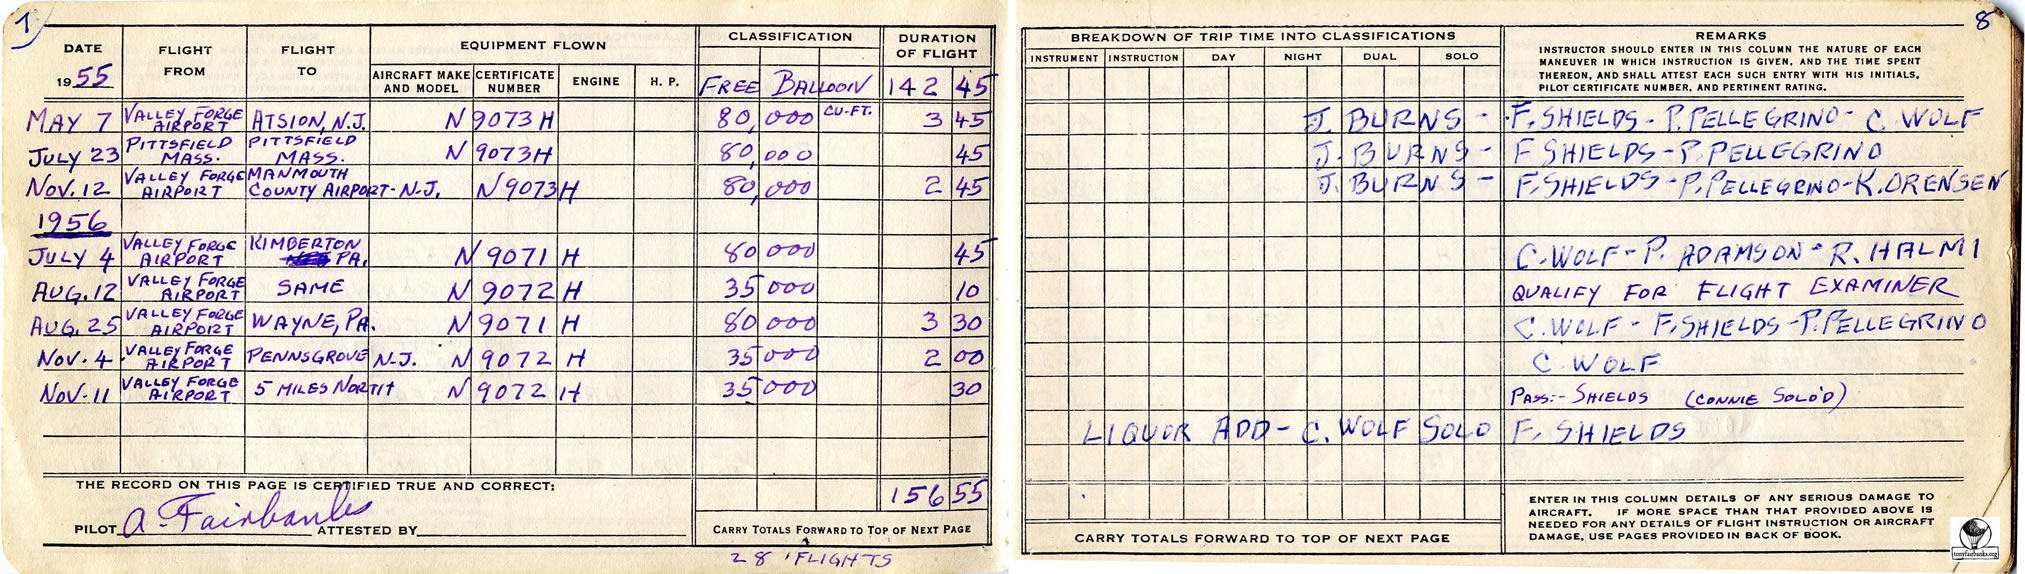 7
DATE
1955
FLIGHT FROM
FLIGHT TO
EQUIPMENT FLOWN
AIRCRAFT MAKE AND MODEL
CERTIFICATE NUMBER
ENGINE
H. P.
CLASSIFICATION
FREE BALLOON
DURATION OF FLIGHT
142 45
MAY 7 VALLEY FORGE AIRPORT ATSION, N.J. N 9073 H 80,000 CU-FT. 3 45
JULY 23 PITTSFIELD MASS. PITTSFIELD MASS. N 9073H 80,000 45
NOV. 12 VALLEY FORGE AIRPORT MANMOUTH COUNTY AIRPORT - N.J. N 9073 H 80,000 2 45
1956
JULY 4 VALLEY FORGE AIRPORT KIMBERTON PA. N 9071 H 80 000 45
AUG. 12 VALLEY FORGE AIRPORT SAME N 9072 H 35 000 10
AUG. 25 VALLEY FORGE AIRPORT WAYNE, PA. N 9071 H 80 000 3 30
NOV. 4 VALLEY FORGE AIRPORT PENNSGROVE N.J. N 9072 H 35 000 2 00
NOV. 11 VALLEY FORGE AIRPORT 5 MILES NORTH N 9072 H 35 000 30
THE RECORD ON THIS PAGE IS CERTIFIED TRUE AND CORRECT:
156 55
PILOT A. Fairbanks ATTESTED BY
CARRY TOTALS FORWARD TO TOP OF NEXT PAGE
28 FLIGHTS
8
BREAKDOWN OF TRIP TIME INTO CLASSIFICATIONS
INSTRUMENT INSTRUCTION DAY NIGHT DUAL SOLO
REMARKS
INSTRUCTOR SHOULD ENTER IN THIS COLUMN THE NATURE OF EACH
MANEUVER IN WHICH INSTRUCTION IS GIVEN, AND THE TIME SPENT
THEREON, AND SHALL ATTEST EACH SUCH ENTRY WITH HIS INITIALS,
PILOT CERTIFICATE NUMBER, AND PERTINENT RATING.
J. BURNS - F. SHIELDS - P. PELLEGRINO - C. WOLF
J. BURNS - F SHIELDS - P. PELLEGRINO
J. BURNS - F. SHIELDS - P. PELLEGRINO - K. ORENSEN
C. WOLF - P. ADAMSON - R. HALMI
QUALIFY FOR FLIGHT EXAMINER
C. WOLF - F. SHIELDS - P. PELLEGRINO
C. WOLF
PASS:- SHIELDS (CONNIE SOLO'D)
LIQUOR ADD - C. WOLF SOLO F. SHIELDS
CARRY TOTALS FORWARD TO TOP OF NEXT PAGE
ENTER IN THIS COLUMN DETAILS OF ANY SERIOUS DAMAGE TO
AIRCRAFT. IF MORE SPACE THAN THAT PROVIDED ABOVE IS
NEEDED FOR ANY DETAILS OF FLIGHT INSTRUCTION OR AIRCRAFT
DAMAGE, USE PAGES PROVIDED IN BACK OF BOOK.
tonyfairbanks.org